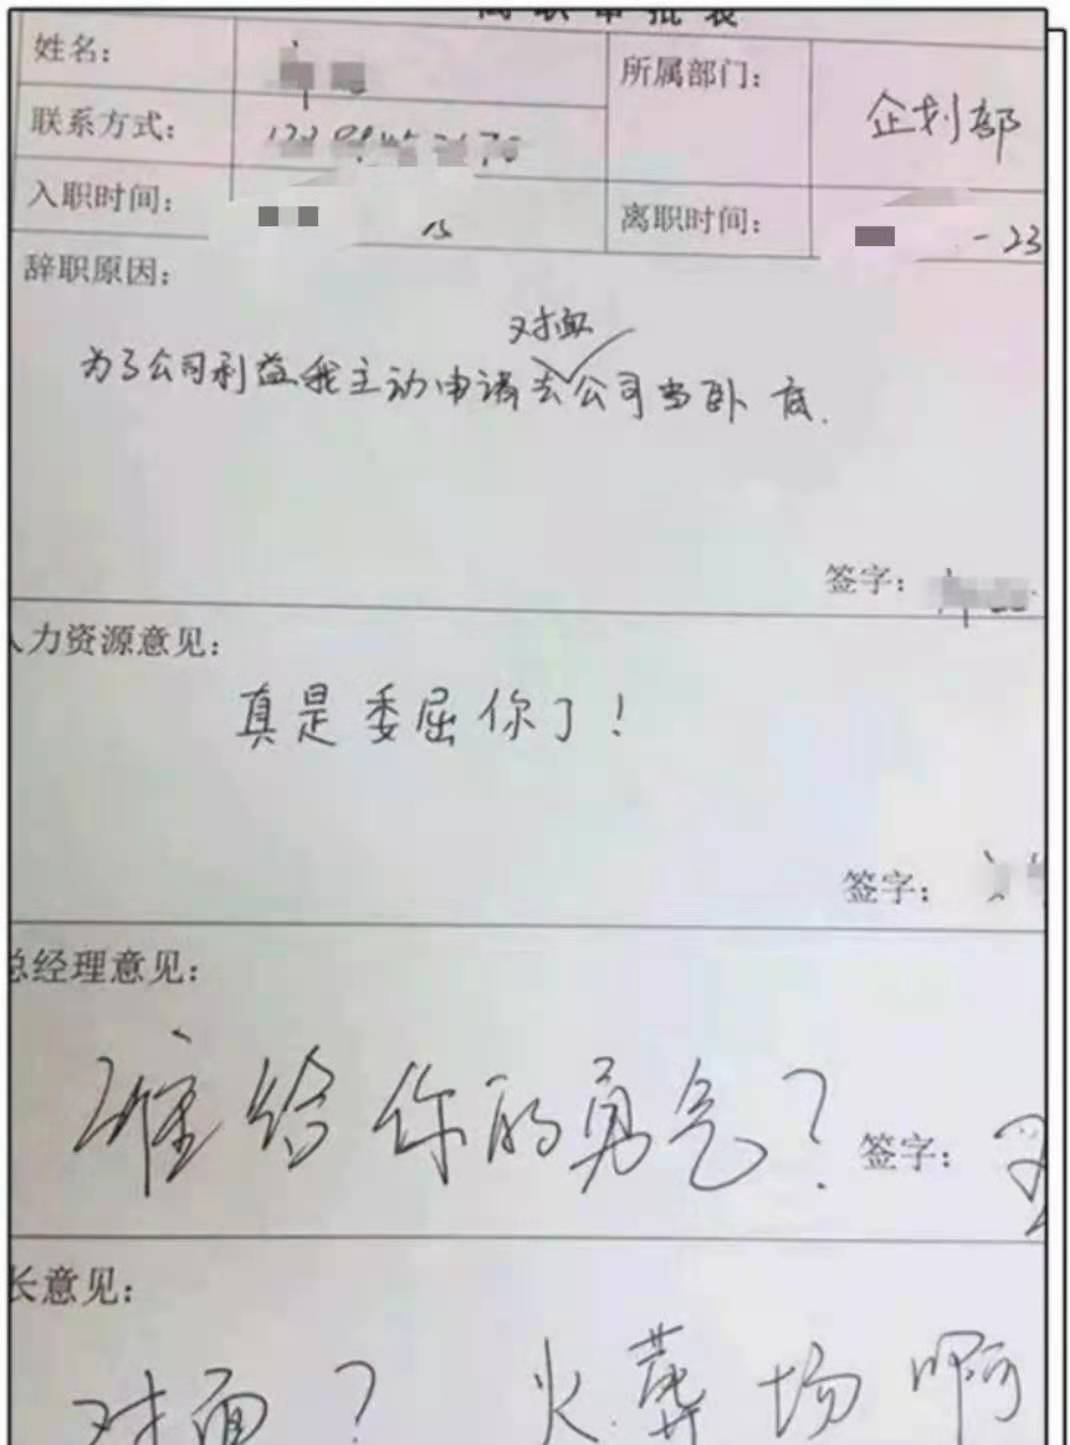 离职审批表
姓名：
所属部门：
企划部
联系方式：
入职时间：
15
离职时间：
-23
辞职原因：
对面
为了公司利益我主动申请去公司当卧底.
签字：
人力资源意见：
真是委屈你了！
签字：
总经理意见：
谁给你的勇气？
签字：
长意见：
对面？ 火葬场啊